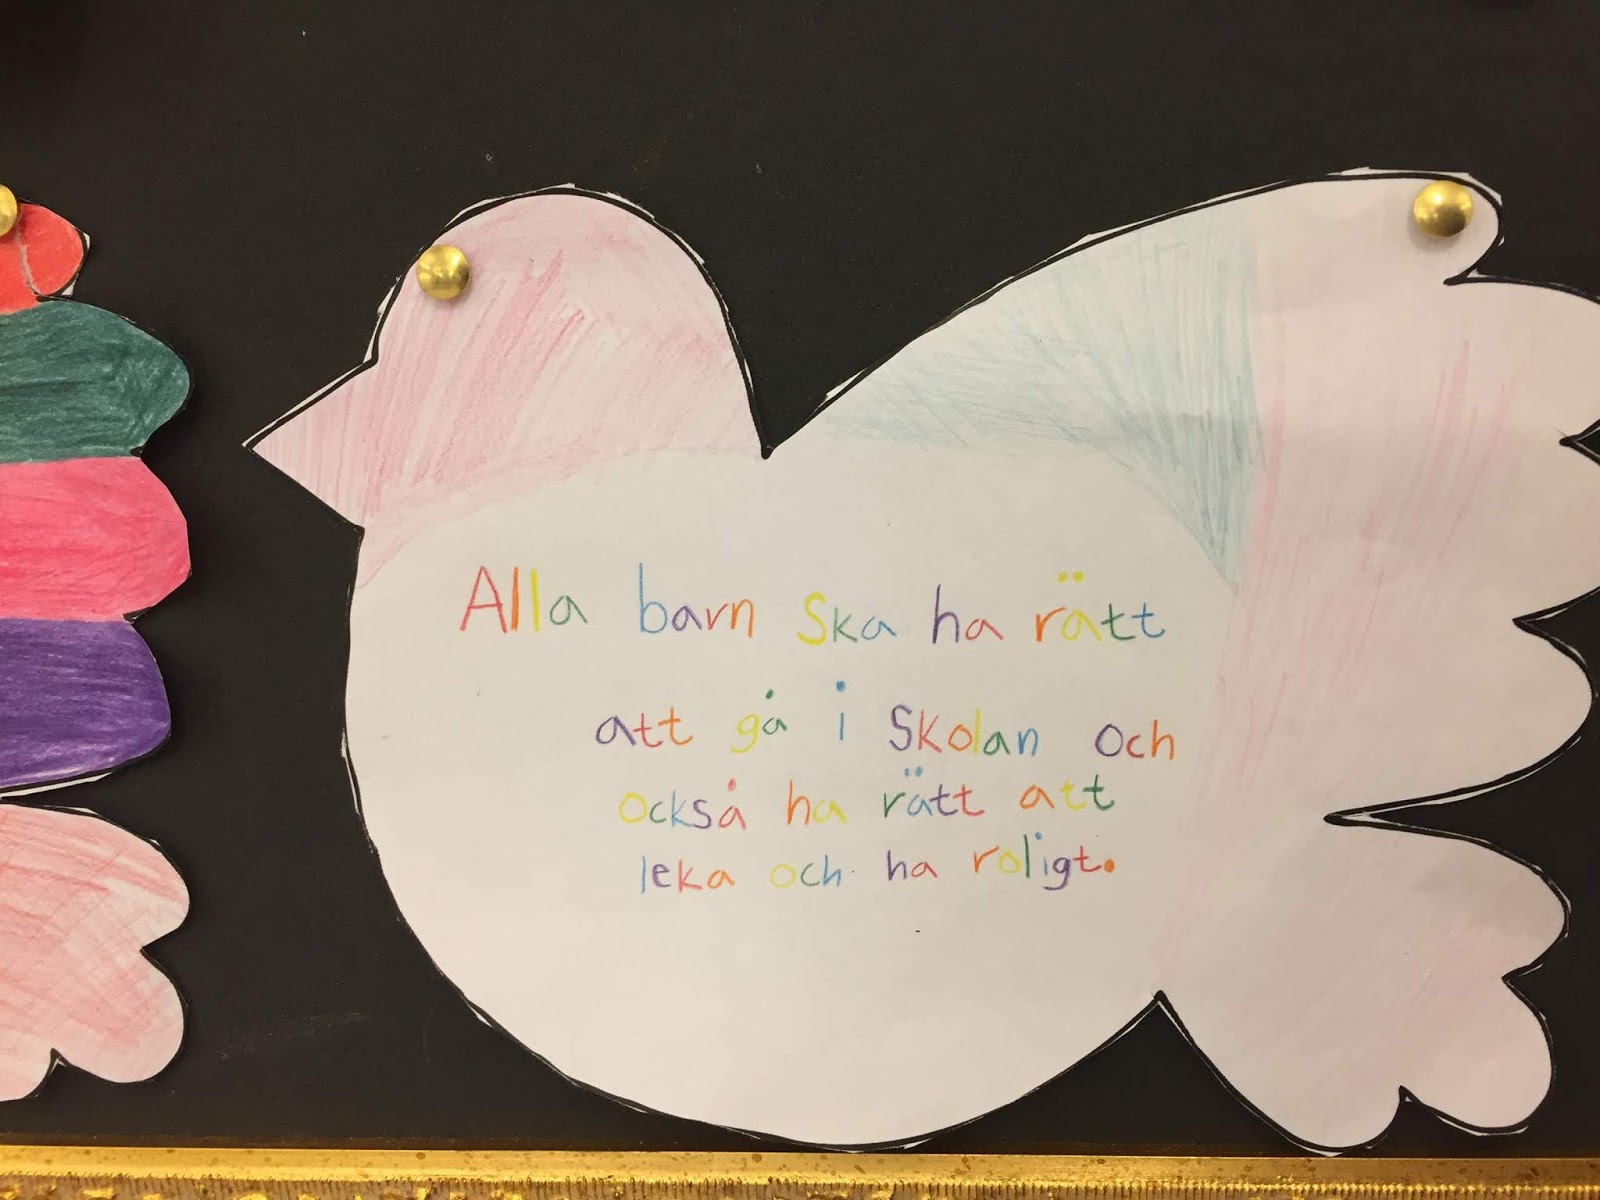 Alla barn Ska ha rätt
att gå i Skolan och
också ha rätt att
leka och ha roligt.